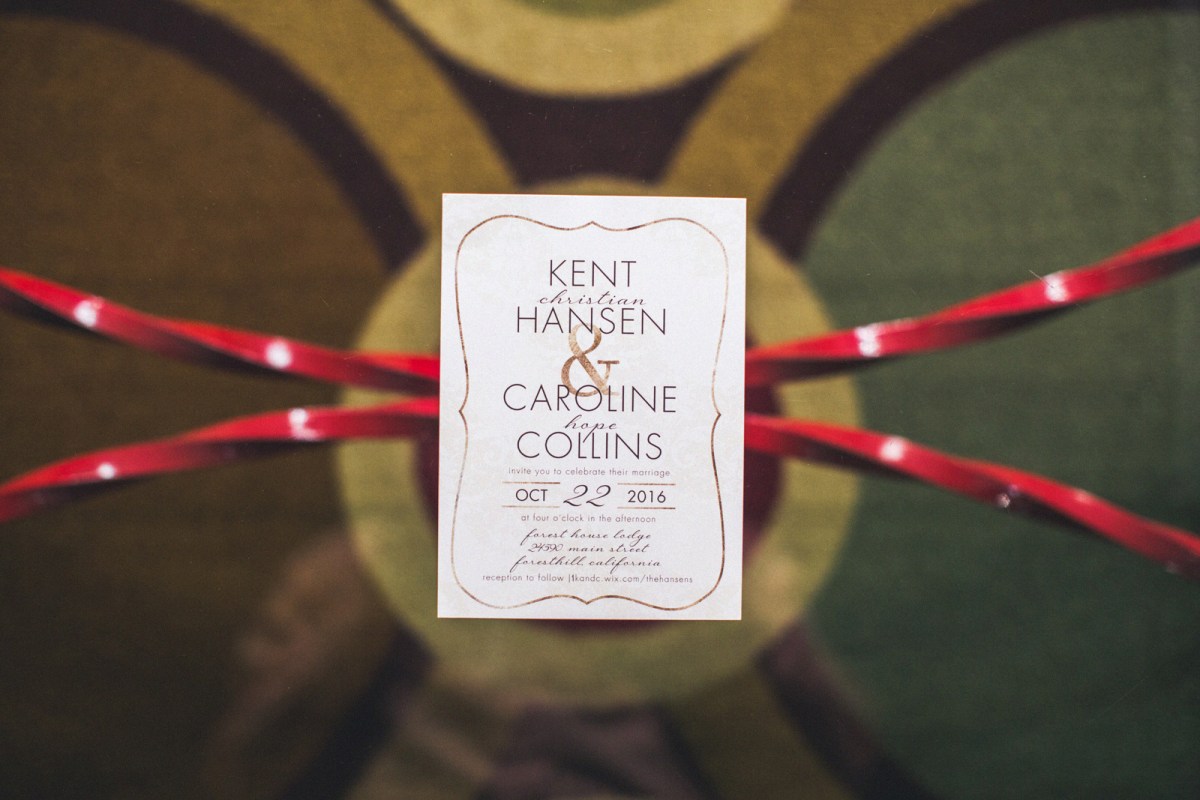 KENT
christian
HANSEN
&
CAROLINE
hope
COLLINS
invite you to celebrate their marriage
OCT 22 2016
at four o'clock in the afternoon
forest house lodge
24590 main street
foresthill, california
reception to follow | tkandc.wix.com/thehansens